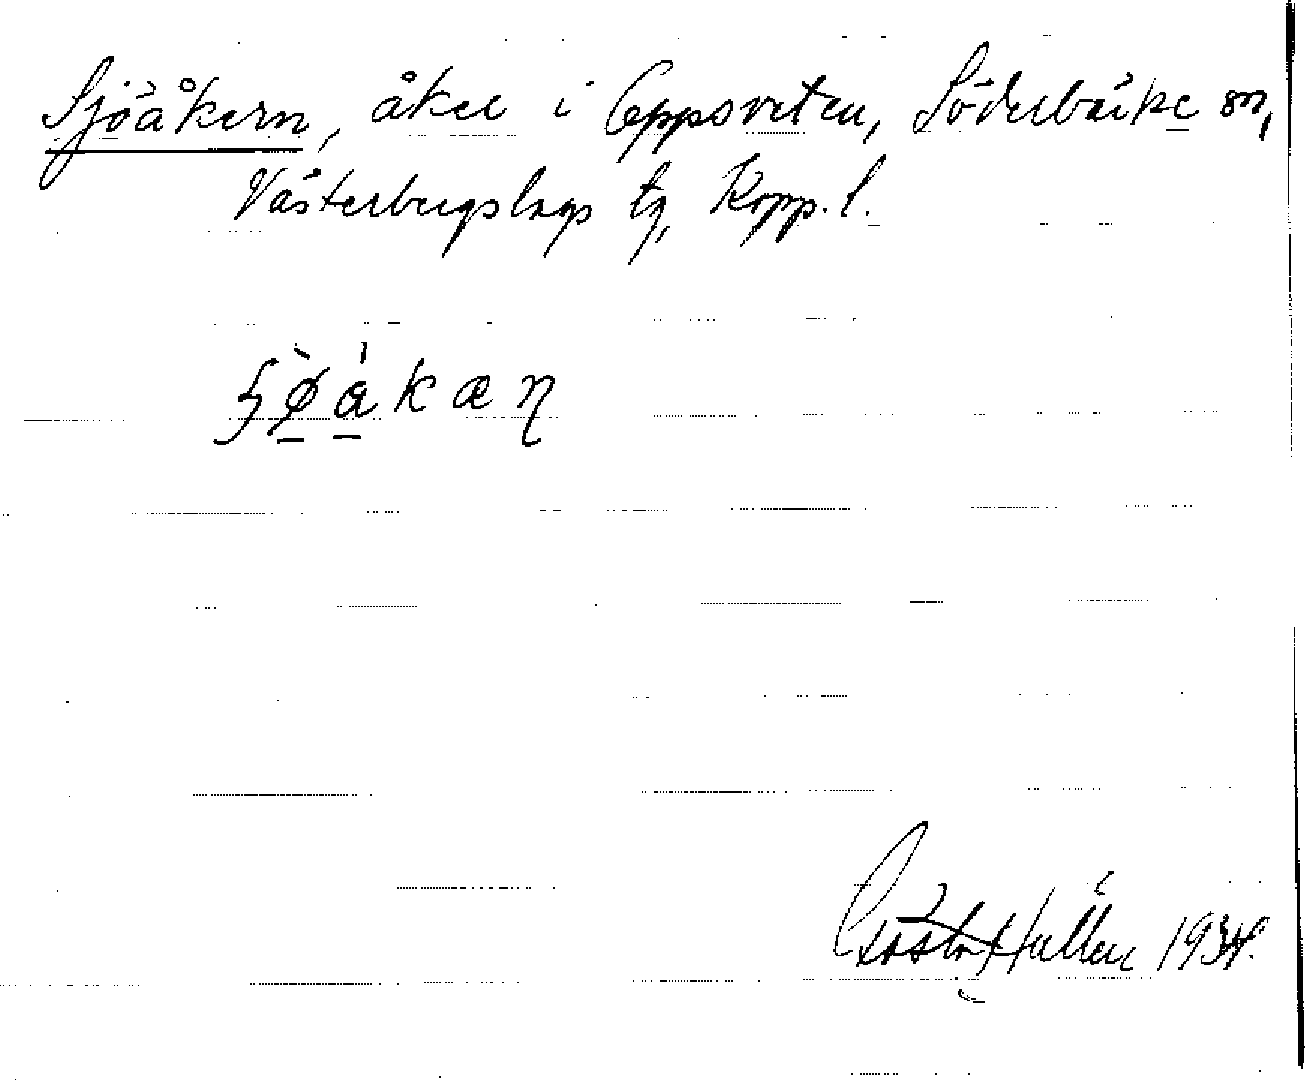 Sjöåkern, åker i Eppsveten, Söderbärke sn,
Västerbergslags tg, Kopp. l.
Gösta Hallén 1934.